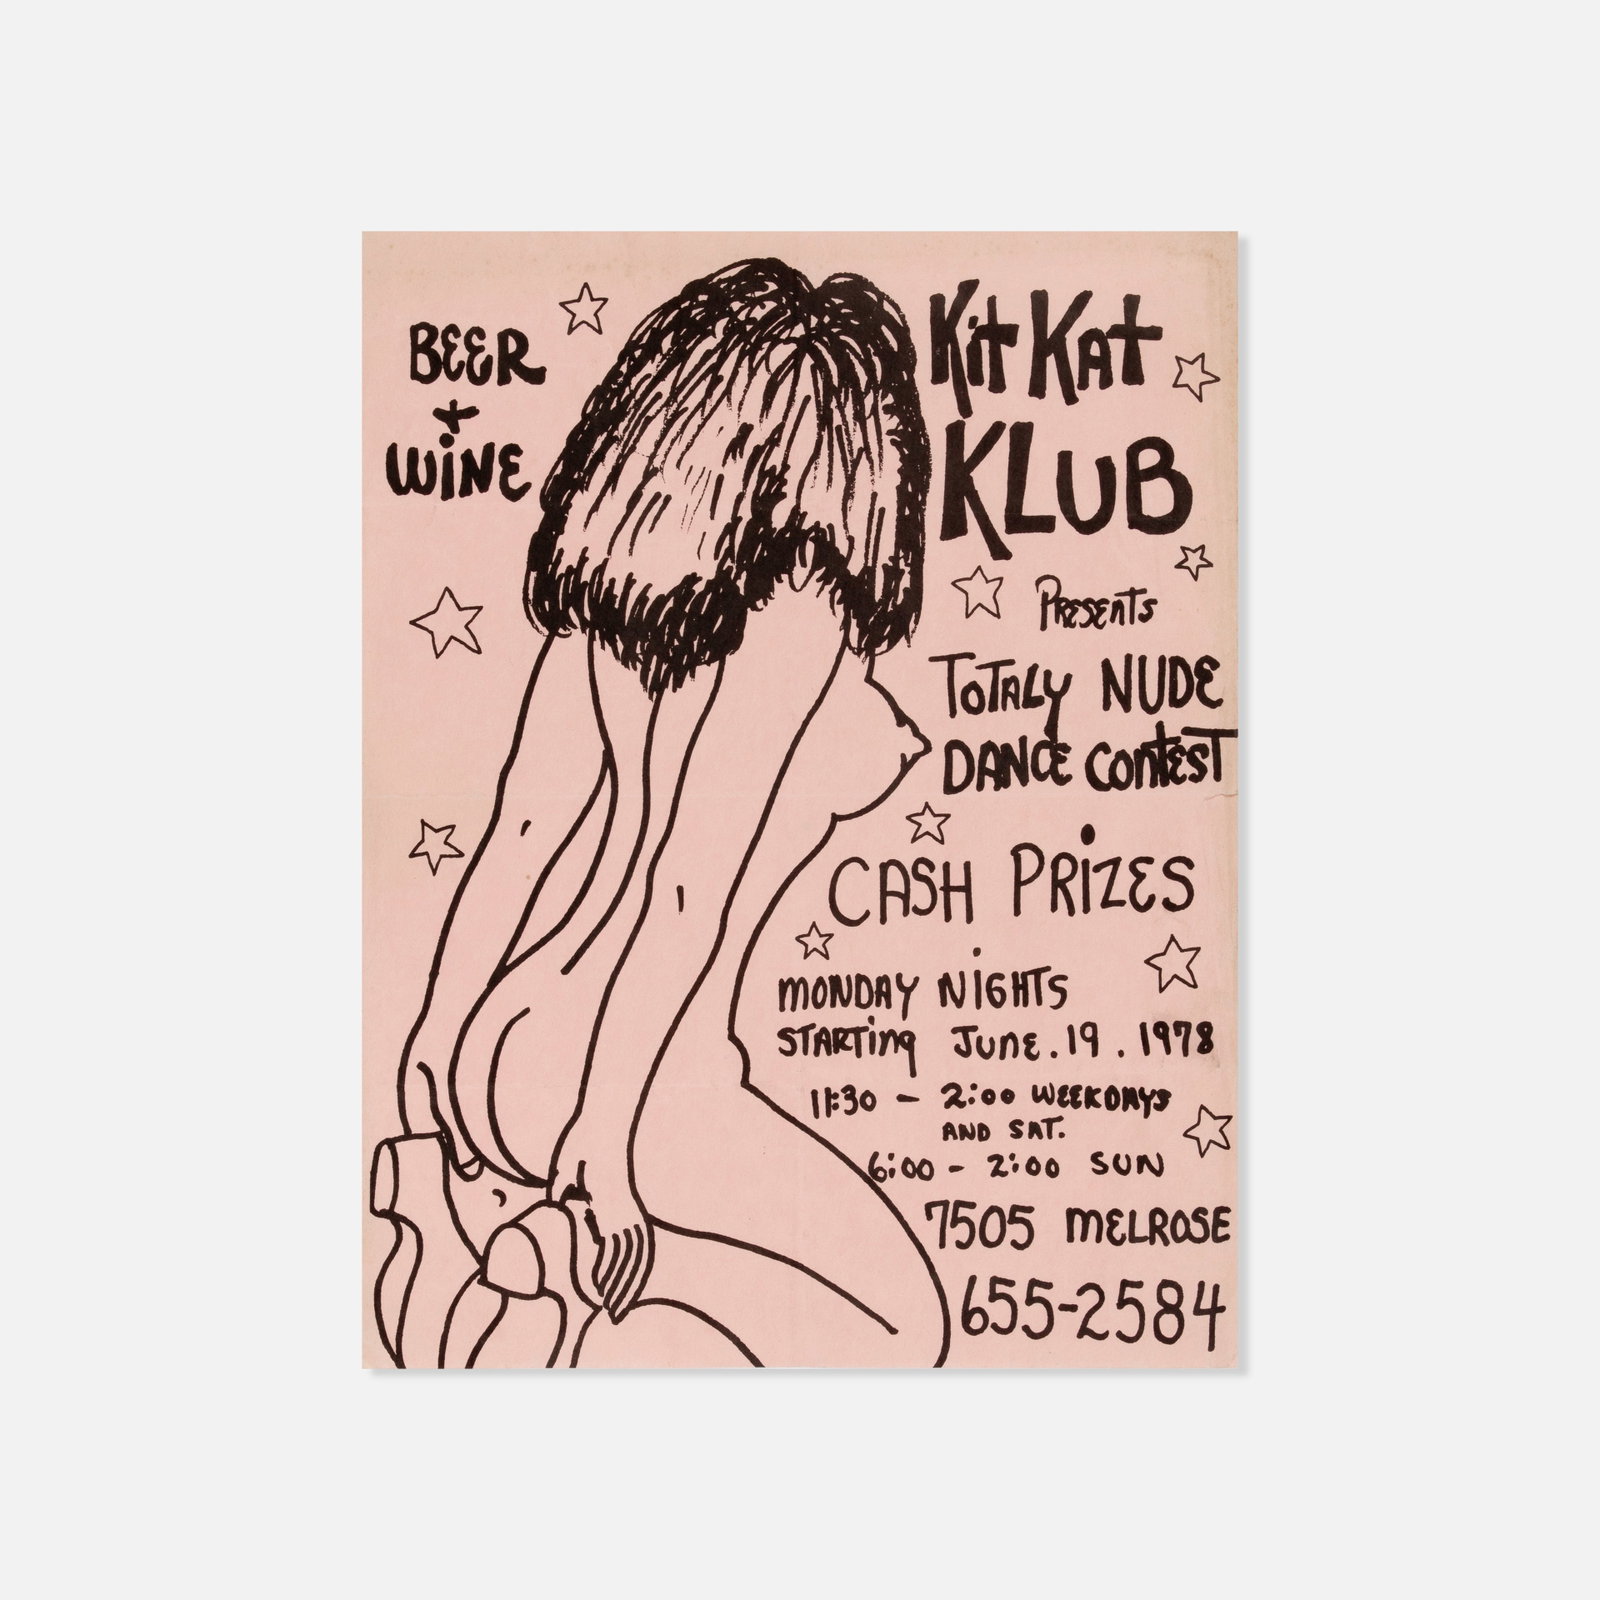 BEER
+
WINE
Kit Kat
KLUB
Presents
TOTALY NUDE
DANCE CONTEST
CASH PRIZES
MONDAY NIGHTS
STARTING JUNE.19.1978
11:30 - 2:00 WEEKDAYS
AND SAT.
6:00 - 2:00 SUN
7505 MELROSE
655-2584